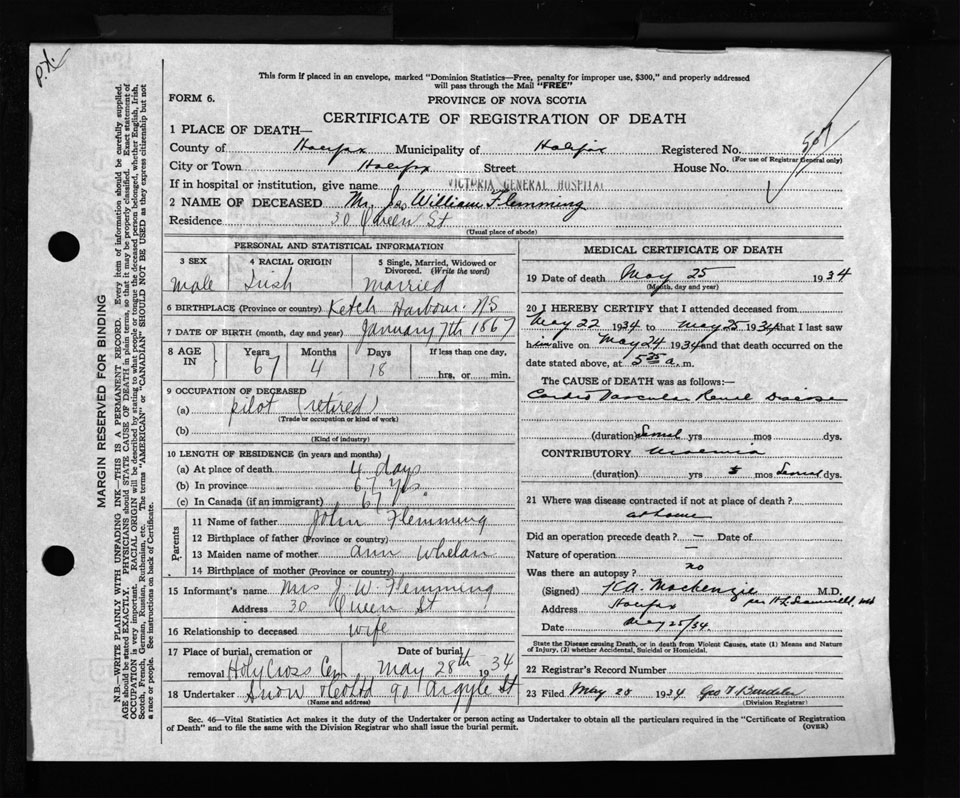 p.t.
This form if placed in an envelope, marked "Dominion Statistics—Free, penalty for improper use, $300," and properly addressed
will pass through the Mail "FREE"
FORM 6.
PROVINCE OF NOVA SCOTIA
CERTIFICATE OF REGISTRATION OF DEATH
1 PLACE OF DEATH—
County of Halifax Municipality of Halifax Registered No.
(For use of Registrar General only)
City or Town Halifax Street House No.
If in hospital or institution, give name VICTORIA GENERAL HOSPITAL
2 NAME OF DECEASED Mr. Jas William Flemming
Residence 30 Queen St
(Usual place of abode)
PERSONAL AND STATISTICAL INFORMATION
3 SEX
male
4 RACIAL ORIGIN
Irish
5 Single, Married, Widowed or
Divorced. (Write the word)
Married
6 BIRTHPLACE (Province or country) Ketch Harbour. N.S
7 DATE OF BIRTH (month, day and year) January 7th 1867
8 AGE IN Years 67 Months 4 Days 18 If less than one day,
hrs. or min.
9 OCCUPATION OF DECEASED
(a) pilot (retired)
(Trade or occupation or kind of work)
(b)
(Kind of industry)
10 LENGTH OF RESIDENCE (in years and months)
(a) At place of death 4 days
(b) In province 67 yrs.
(c) In Canada (if an immigrant) 67 "
Parents
11 Name of father John Flemming
12 Birthplace of father (Province or country)
13 Maiden name of mother Ann Whelan
14 Birthplace of mother (Province or country)
15 Informant's name Mrs J. W. Flemming
Address 30 Queen St
16 Relationship to deceased wife
17 Place of burial, cremation or Date of burial
removal Holy Cross Cem May 28th 1934
18 Undertaker Snow & Co Ltd 90 Argyle St
(Name and address)
MEDICAL CERTIFICATE OF DEATH
19 Date of death May 25 1934
(Month, day and year)
20 I HEREBY CERTIFY that I attended deceased from
May 22 1934 to May 25 1934 that I last saw
him alive on May 24 1934 and that death occurred on the
date stated above, at 5 25 a. m.
The CAUSE OF DEATH was as follows:—
Cardio Vascular Renal Disease
(duration) Several yrs mos dys.
CONTRIBUTORY Uraemia
(duration) yrs mos Several dys.
21 Where was disease contracted if not at place of death?
at home
Did an operation precede death? — Date of
Nature of operation —
Was there an autopsy? no
(Signed) K.A. Mackenzie M.D.
Address Halifax
Date May 25/34.
State the Disease causing Death, or in death from Violent Causes, state (1) Means and Nature
of Injury, (2) whether Accidental, Suicidal or Homicidal.
22 Registrar's Record Number
23 Filed May 28 1934
(Division Registrar)
Sec. 46—Vital Statistics Act makes it the duty of the Undertaker or person acting as Undertaker to obtain all the particulars required in the "Certificate of Registration
of Death" and to file the same with the Division Registrar who shall issue the burial permit.
(OVER)
MARGIN RESERVED FOR BINDING
N.B.—WRITE PLAINLY WITH UNFADING INK—THIS IS A PERMANENT RECORD. Every item of information should be carefully supplied.
AGE should be stated EXACTLY. PHYSICIANS should STATE CAUSE OF DEATH in plain terms, so that it may be properly classified. Exact statement of
OCCUPATION is very important. RACIAL ORIGIN will be described by stating to what people or tongue the deceased person belonged, whether English, Irish,
Scotch, French, German, Russian, Ruthenian, etc. The terms "AMERICAN" or "CANADIAN" SHOULD NOT BE USED as they express citizenship but not
a race or people. See instructions on back of Certificate.